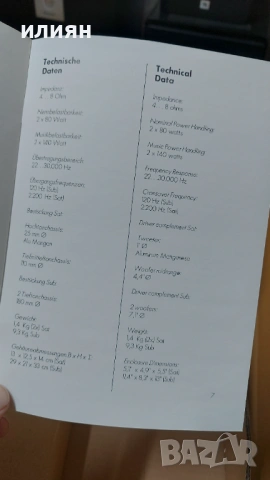 илиян
Technische
Daten
Impedanz:
4 ... 8 Ohm
Nennbelastbarkeit:
2 x 80 Watt
Musikbelastbarkeit:
2 x 140 Watt
Übertragungsbereich:
22 ... 30.000 Hz
Übergangsfrequenzen:
120 Hz (Sub)
2.200 Hz (Sat)
Bestückung Sat
Hochtonchassis:
25 mm Ø
Alu Mangan
Tiefmitteltonchassis:
Bestückung Sub
2 Tieftonchassis:
180 mm Ø
Gewicht:
1,4 Kg (2x) Sat
9,3 Kg Sub
Gehäuseabmessungen B x H x T:
13 x 12,5 x 14 cm (Sat)
29 x 27 x 33 cm (Sub)
Technical
Data
Impedance:
4 ... 8 ohms
Nominal Power Handling:
2 x 80 watts
Music Power Handling:
2 x 140 watts
Frequency Response:
22 ... 30.000 Hz
Crossover Frequency:
120 Hz (Sub)
2.200 Hz (Sat)
Driver complement Sat
Tweeter:
1" Ø
Aluminium Manganese
Woofer/Midrange:
Driver complement Sub
2 woofer:
7,1" Ø
Weight:
1,4 Kg (2x) Sat
9,3 Kg Sub
Enclosure Dimensions:
7
bazar.bg